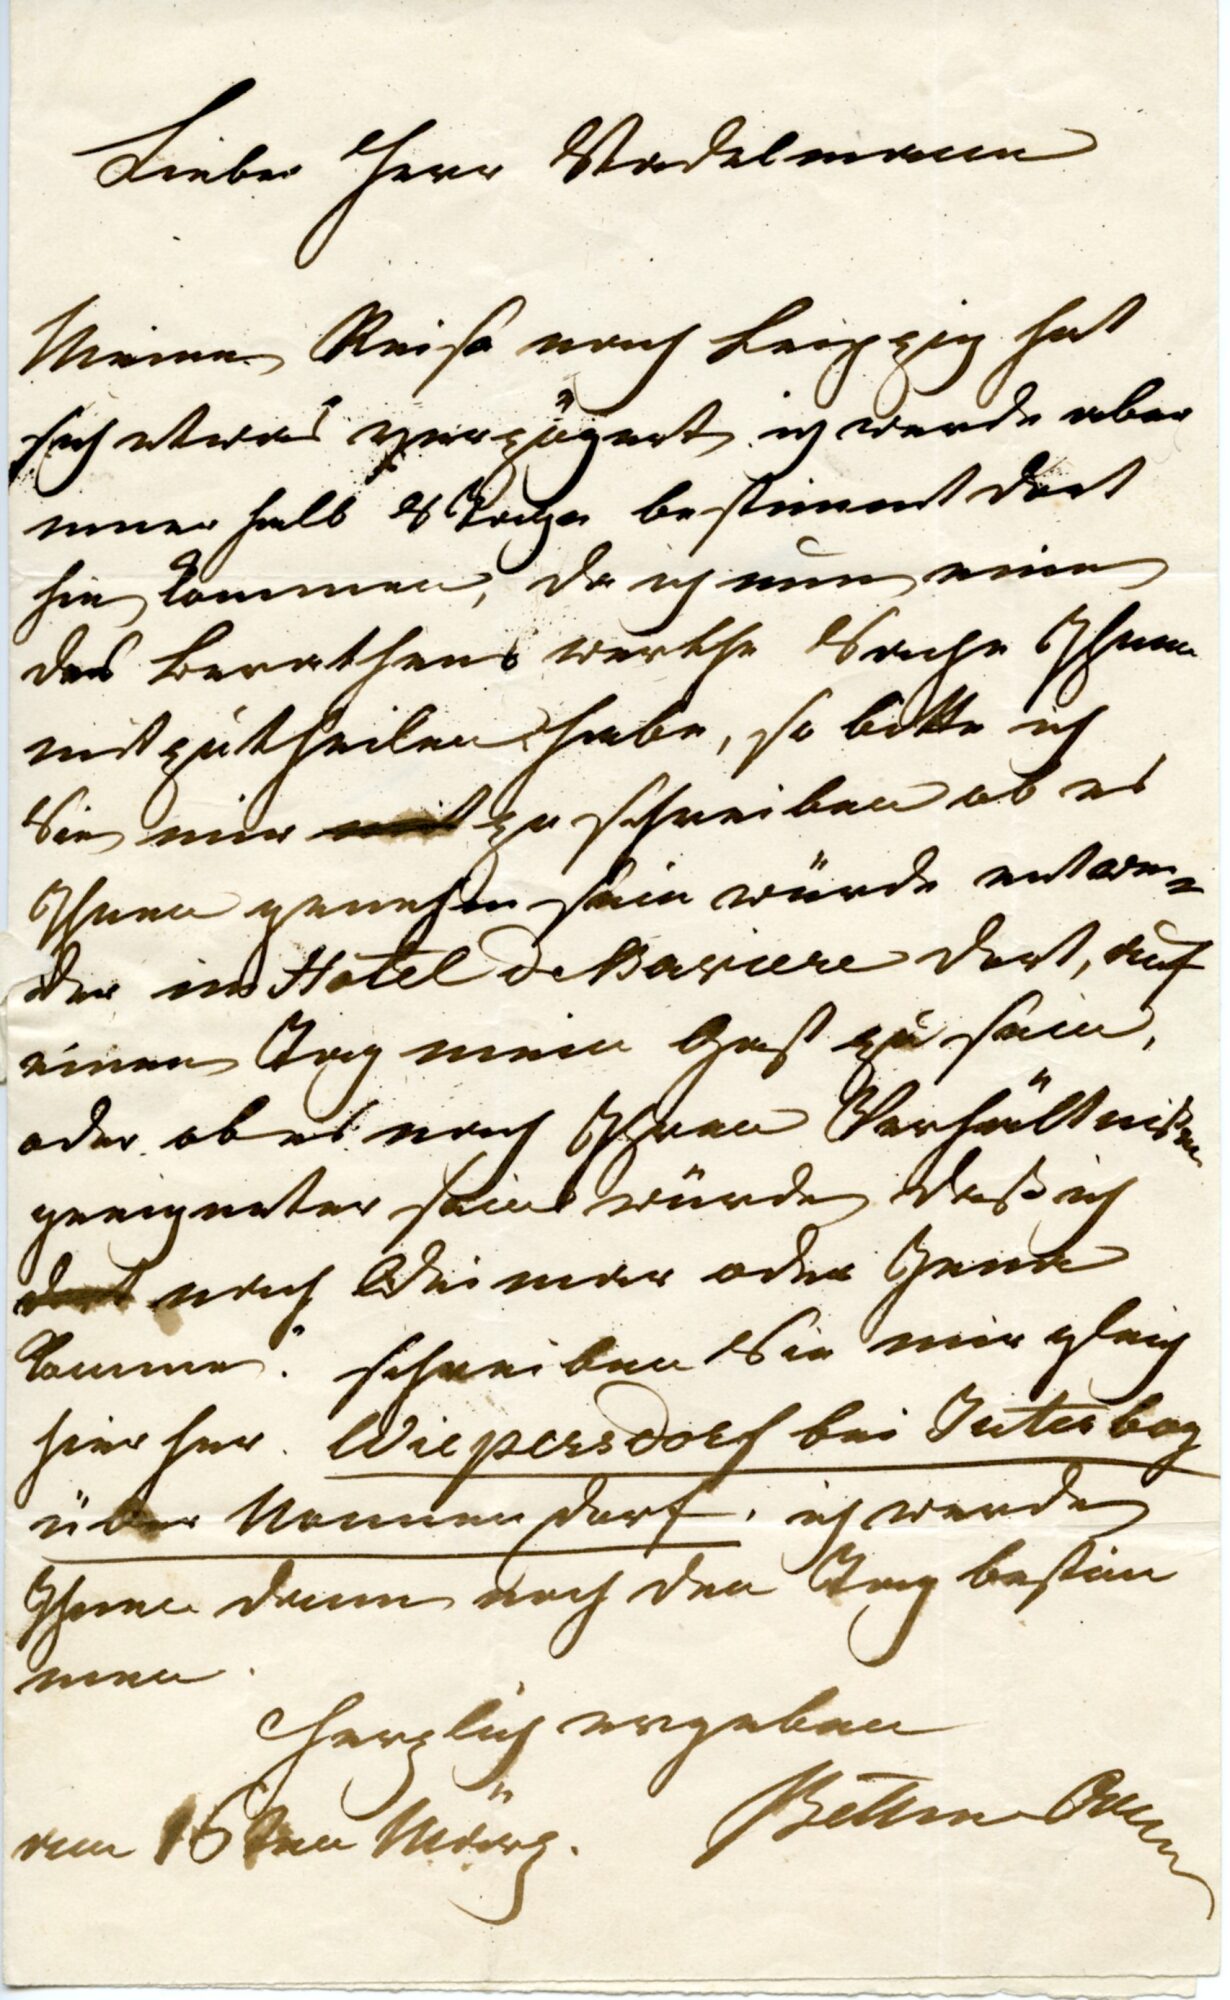 Lieber Herr Stadelmann
Meine Reise nach Leipzig hat
sich etwas verzögert, ich werde aber
inner halb 8 Tage bestimmt dort
hin kommen, da ich nun eine
des Berathens werthe Sache Ihnen
mitzutheilen habe, so bitte ich
Sie mir zu schreiben ob es
Ihnen genehm sein würde entwe-
der im Hotel de Baviere dort, auf
einen Tag mein Gast zu sein,
oder ob es nach Ihren Verhältnissen
geeigneter sein würde daß ich
dort nach Weimar oder Jena
komme. schreiben Sie mir gleich
hier her. Wiepersdorf bei Juterbog
über Nonnendorf. ich werde
Ihnen dann noch den Tag bestim
men.
Herzlich ergeben
am 16ten März. Bettine Arnim